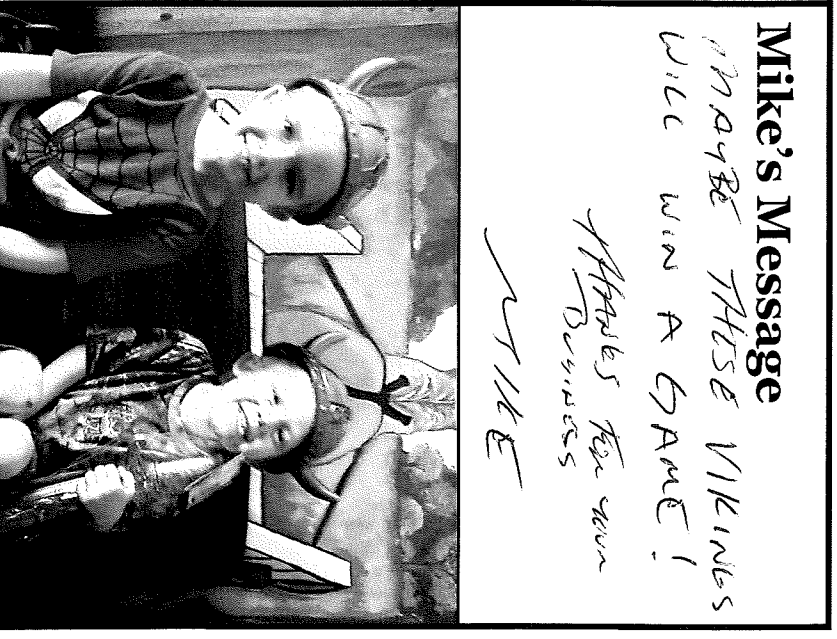 Mike's Message
MAYBE THESE VIKINGS
WILL WIN A GAME!
THANKS FOR YOUR
BUSINESS
MIKE